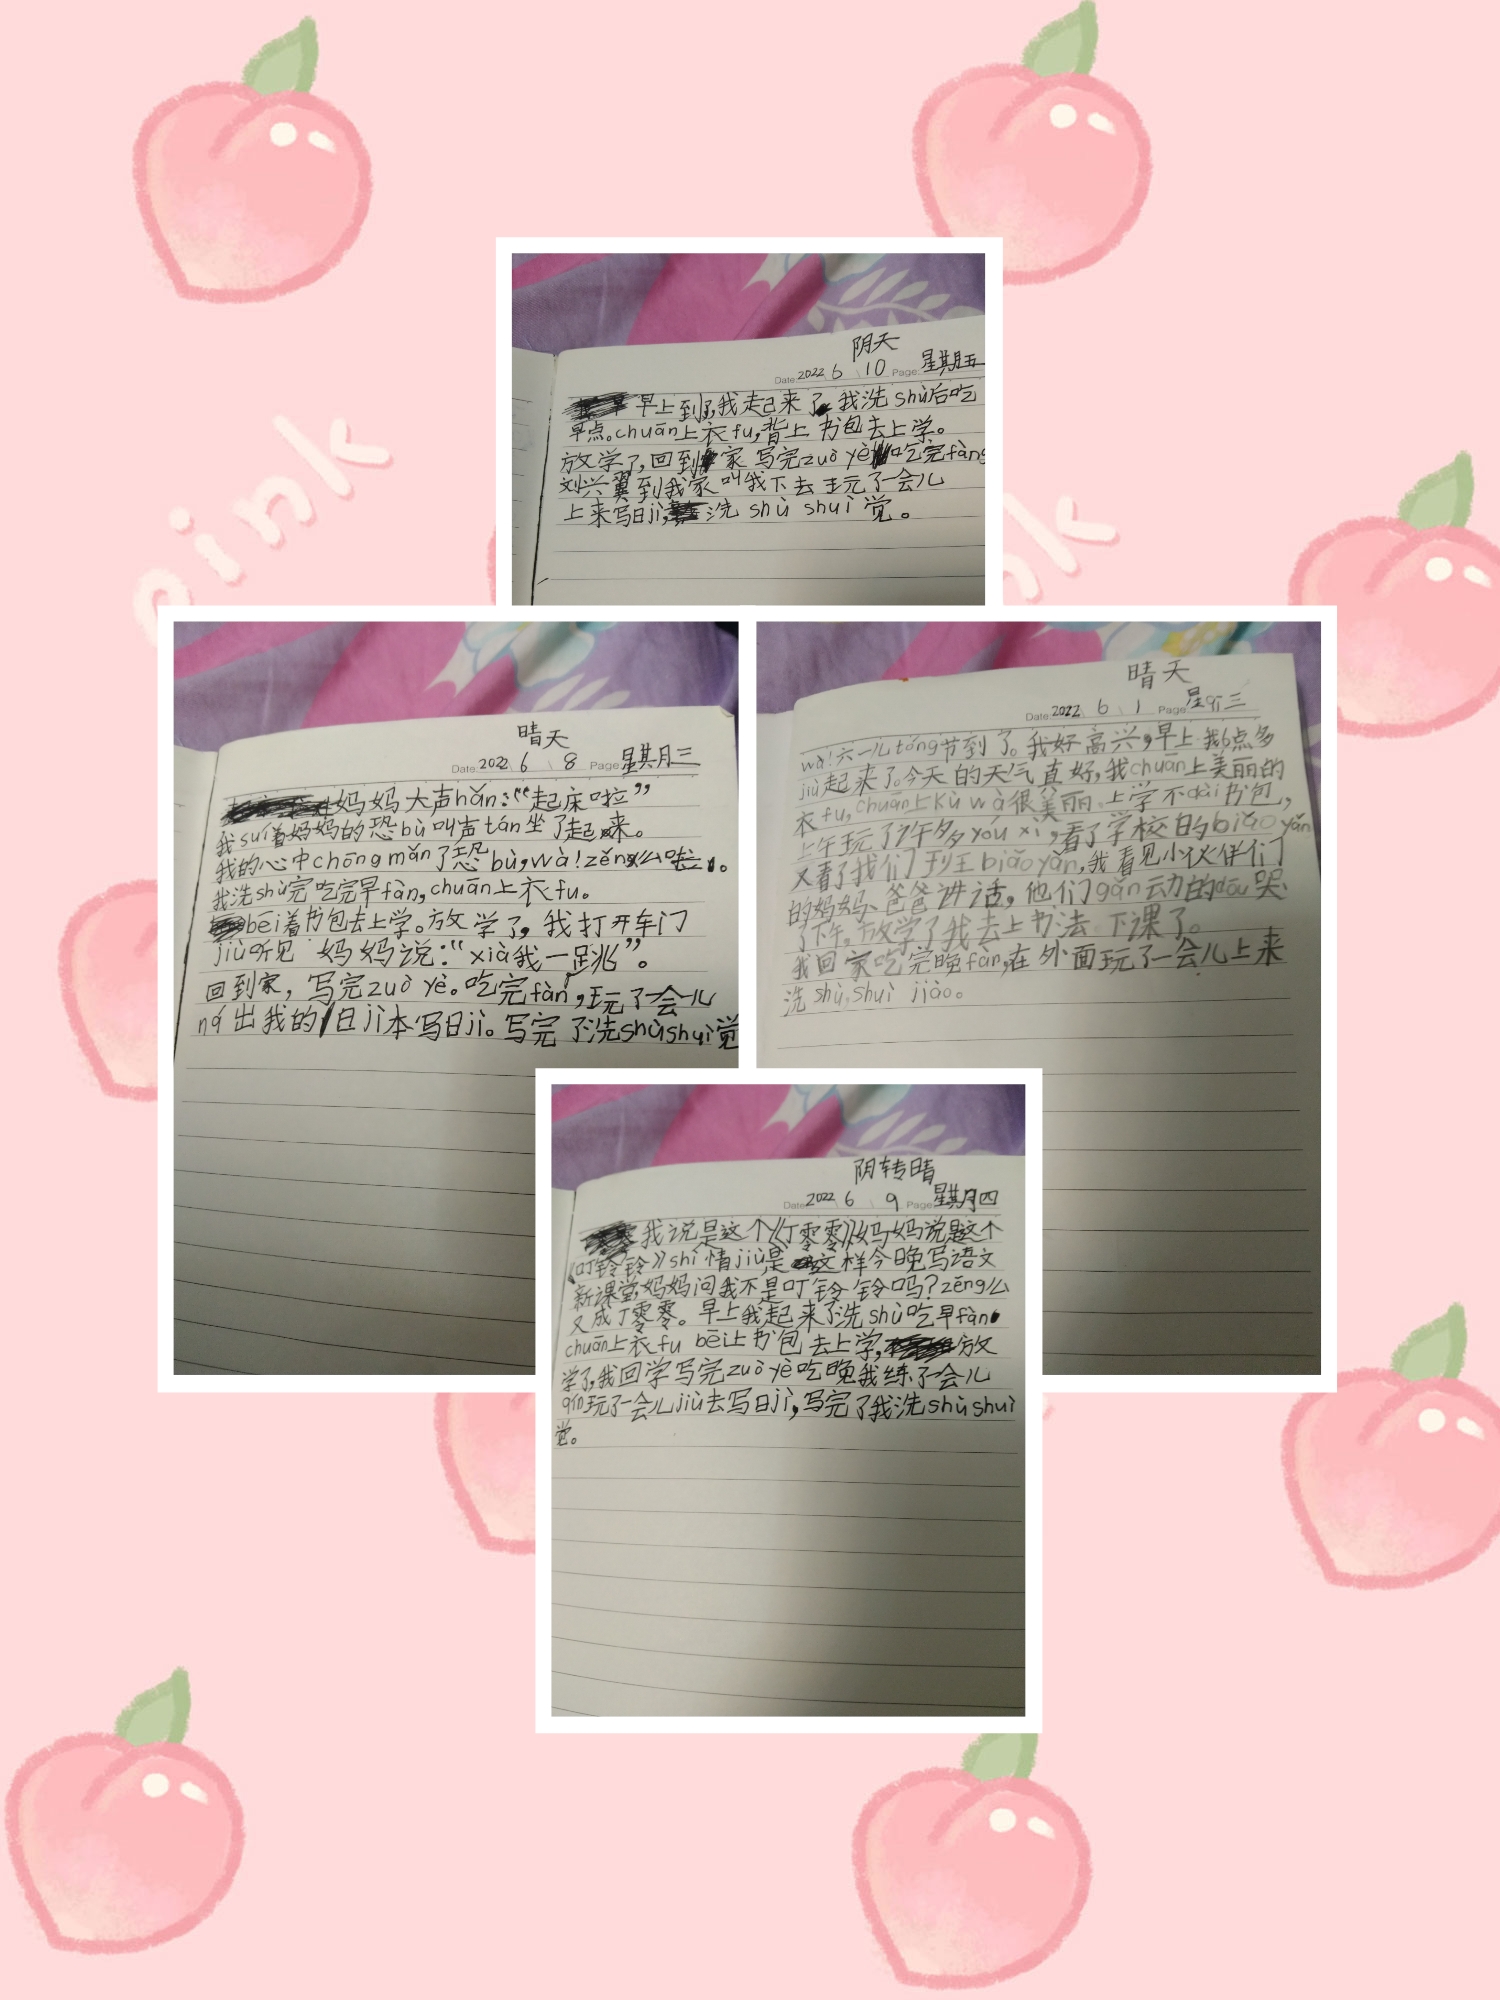 pink
阴天
Date 2022 6 10 Page 星期五
早上到了,我起来了 我洗shù后吃
早点。chuān上衣fu,背上书包去上学。
放学了,回到家写完zuò yè吃完fàn
刘兴翼到我家叫我下去玩了一会儿
上来写日jì,洗shù shuì觉。
晴天
Date 2022 6 8 Page 星其月三
妈妈大声hǎn:“起床啦”
我suí着妈妈的恐bù叫声tán坐了起来。
我的心中chōng mǎn了恐bù,wà!zěng么啦。
我洗shù完吃完早fàn,chuān上衣fu。
bēi着书包去上学。放学了,我打开车门
jiù听见妈妈说:“xià我一跳”。
回到家,写完zuò yè。吃完fàn,玩了一会儿
ná出我的日jì本写日jì。写完了洗shùshuì觉
晴天
Date 2022 6 1 Page 三
wà!六一儿tóng节到了。我好高兴,早上我6点多
jiù起来了。今天的天气真好,我chuān上美丽的
衣fu,chuān上kù wà很美丽。上学不dài书包,
上午玩了2午多多yóu xì,看了学校的biǎo yǎn
又看了我们biǎo yǎn,我看见小伙伴们
的妈妈、爸爸讲话,他们gǎn动的dōu哭
了下午。放学了我去上书法 下课了。
我回家吃完晚fàn,在外面玩了一会儿上来
洗shù,shuì jiào。
阴转晴
Date 2022 6 9 Page 星其月四
我说是这个《丁零零》妈妈说是这个
《叮铃铃》shì情jiù是这样今晚写语文
新课堂,妈妈问我不是叮铃铃吗?zěng么
又成丁零零。早上我起来了洗shù吃早fàn
chuān上衣fu bēi上书包去上学,放
学了,我回学写完zuò yè吃晚我练了一会儿
qín玩了一会儿jiù去写日jì,写完了我洗shù shuì
觉。